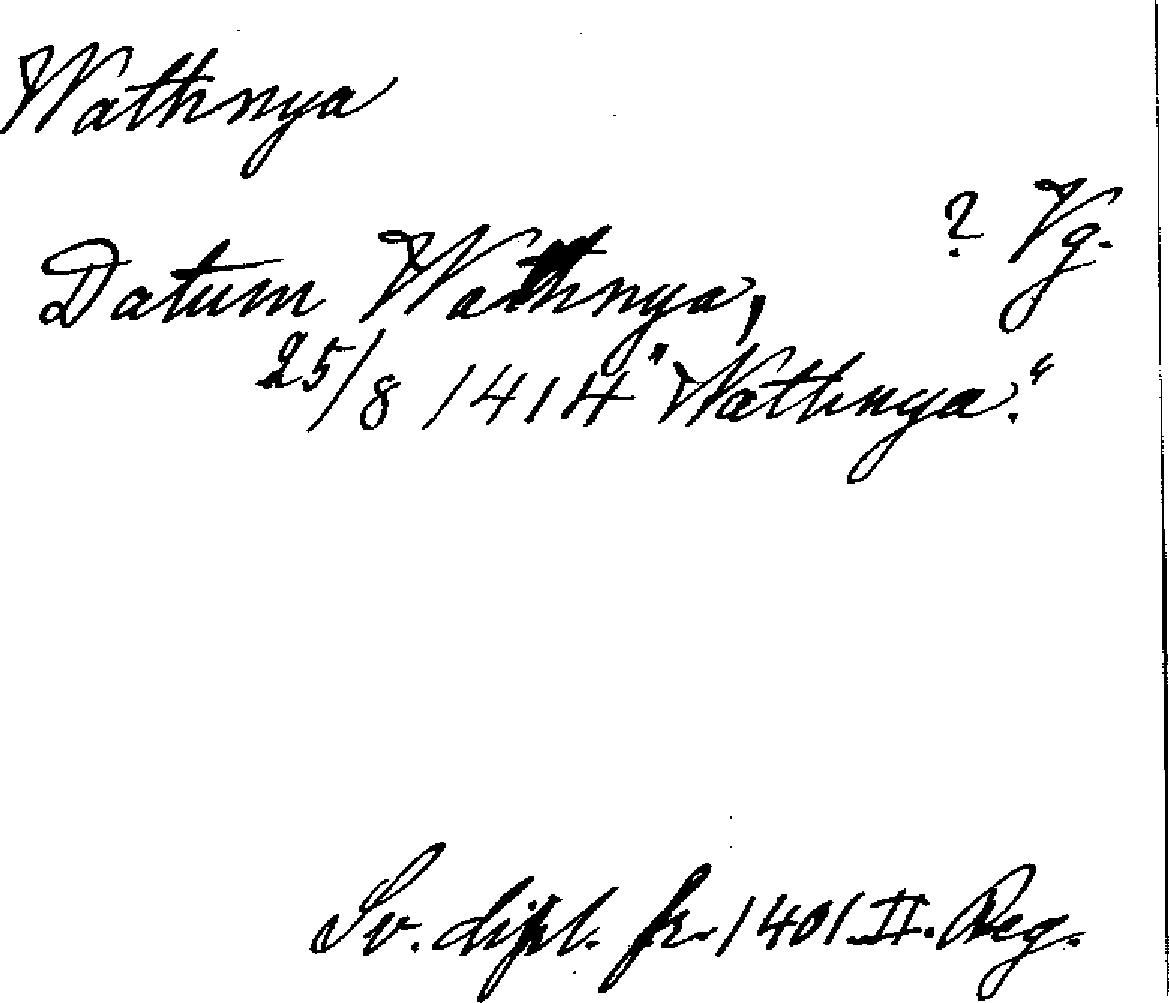 Wathnya
? Vg.
Datum Wathnya,
25/8 1414 "Wathnya."
Sv. dipl. fr. 1401. II. Reg.